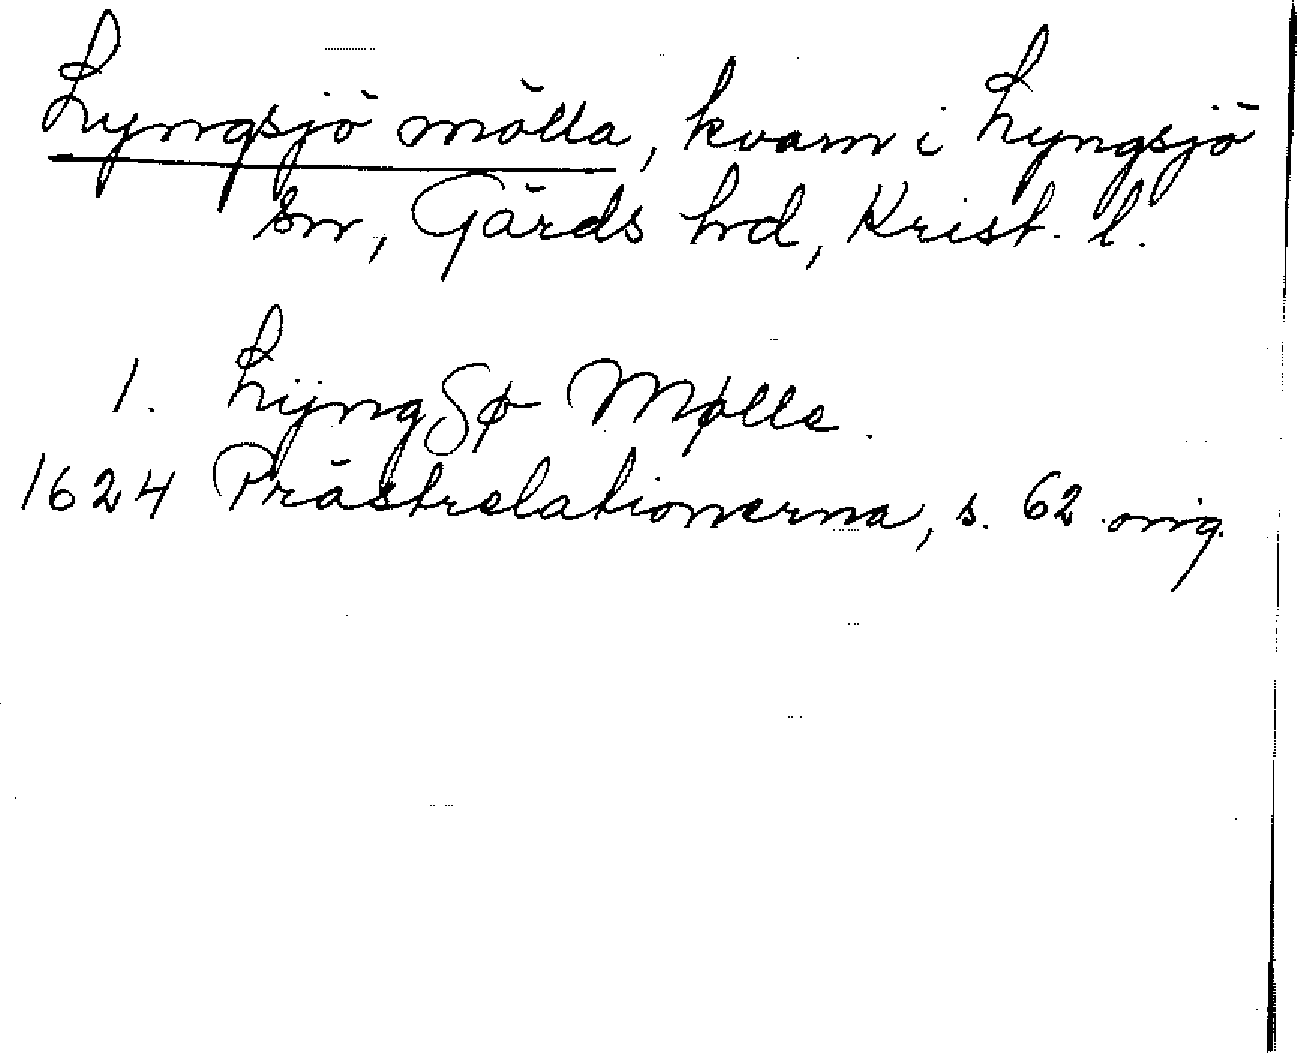 Lyngsjö mölla, kvarn i Lyngsjö
sn, Gärds hd, Krist. l.
1. LÿngSø Mølle.
1624 Prästrelationerna, s. 62 orig.